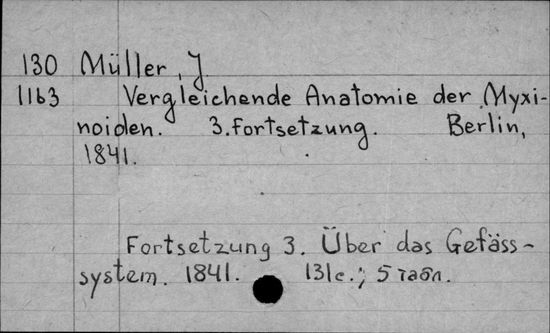 130 Müller, J.
1163 Vergleichende Anatomie der Myxi-
noiden. 3. Fortsetzung. Berlin,
1841.
Fortsetzung 3. Über das Gefäss-
system. 1841. 131c.; 5 табл.